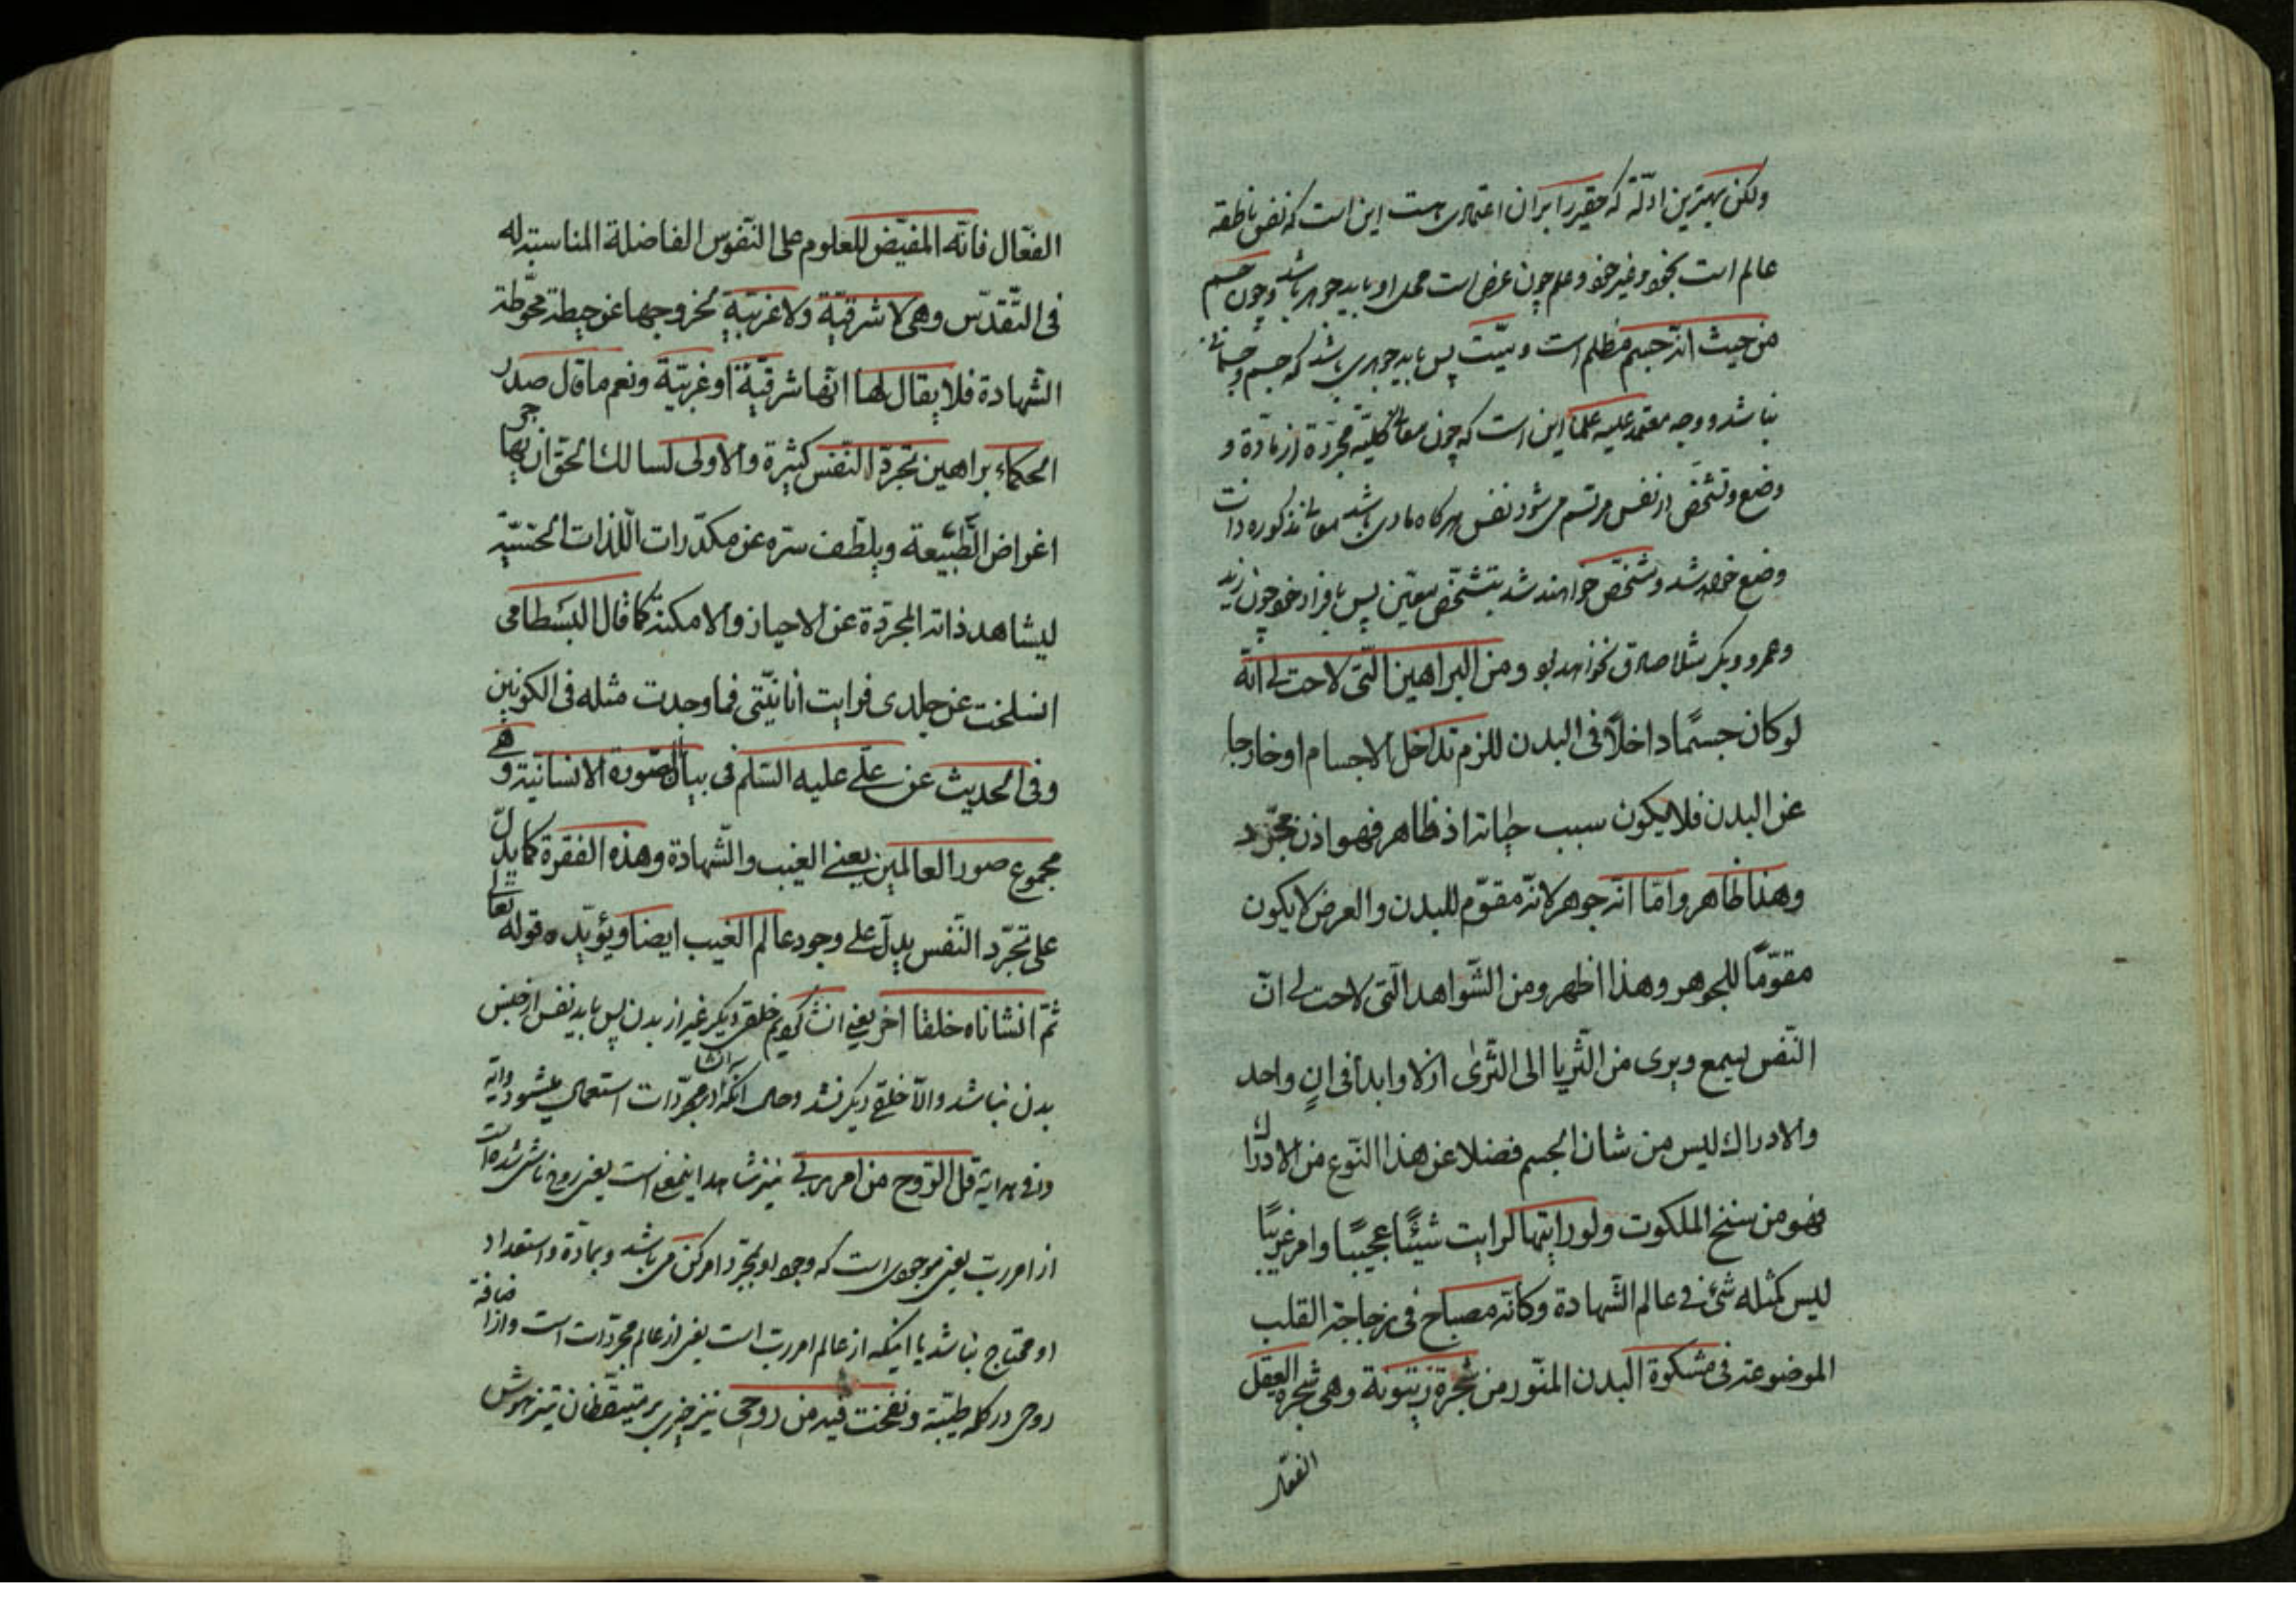 ولکن بهترین ادلّه که حقیر را بر آن اعتمادی هست این است که نفس ناطقه
عالم است بخود و غیر خود و علم چون عرض است محل او باید جوهر باشد و چون جسم
من حیث انه جسم مظلم است و میّت پس باید جوهری باشد که جسم و جسمانی
نباشد و وجه معتمد علیه علما این است که چون معانی کلیّه مجرّدة از مادّة و
وضع و تشخّص در نفس مرتسم می‌شود نفس هرگاه مادی باشد معانی مذکوره ذات
وضع خواهد شد و متشخّص خواهند شد بتشخّص معیّن پس بافراد خود چون زید
وعمرو وبکر مثلا صادق نخواهد بود ومن البراهین الّتی لاحت لی انّه
لو کان جسمًا داخلاً فی البدن للزم تداخل الاجسام او خارجا
عن البدن فلا یکون سبب حیاته اذ ظاهر فهو اذن مجّرد
وهذا ظاهر وامّا انّه جوهر لانّه مقوّم للبدن والعرض لا یکون
مقوّمًا للجوهر وهذا اظهر ومن الشّواهد الّتی لاحت لی انّ
النّفس یسمع ویری من الثّریا الی الثّری ازلا وابدأ فی انٍ واحد
والادراك لیس من شان الجسم فضلا عن هذا النّوع من الادراك
فهو من سنخ الملکوت ولو رایتها لرایت شیئًا عجیبًا وامر غریبًا
لیس کمثله شئ فی عالم الشّهادة وکأنّه مصباح فی زجاجة القلب
الموضوعة فی مشکوة البدن المنّور من شجرة زیتونة وهی شجرة العقل
الفعّال
الفعّال فانّه المفیّض للعلوم علی النّفوس الفاضلة المناسبة له
فی التّقدّس وهی لا شرقیّة ولا غربیّة لخروجها عن حیطة محوّطة
الشّهادة فلا یقال لها انّها شرقیّة او غربیّة ونعم ما قال صدر
الحکماء براهین تجرّد النّفس کثیرة والاولی لسالك الحق ان یهاجر
اغراض الطّبیعة ویلطّف سرّه عن مکدّرات اللّذات الحسّیّة
لیشاهد ذاته المجرّدة عن الاحیاز والامکنة کما قال البسطامی
انسلخت عن جلدی فرایت أنانیّتی فما وجدت مثله فی الکونین
وفی الحدیث عن علی علیه السّلم فی بیان الصّورة الانسانیّة وهی
مجموع صور العالمین یعنی الغیب والشّهادة وهذه الفقرة کما یدلّ
علی تجرّد النّفس یدلّ علی وجود عالم الغیب ایضا ویؤیّده قوله تعالی
ثمّ انشاناه خلقا اخر یعنی انشا کردیم خلقی دیگر غیر از بدن پس باید نفس از جنس
بدن نباشد والّا خلقی دیگر نشد و حال آنکه انشا در مجرّدات استعمال میشود وآیه
قل الرّوح من امر ربّی نیز شاهد اینمعنی است یعنی روح ناشی شده است
از امر ربّ یعنی موجودی است که وجود او بمجرّد امر کن می‌باشد و بمادّة و استعداد
او محتاج نباشد یا اینکه از عالم امر ربّ است یعنی از عالم مجرّدات است و از اضافه
روح در کلمه طیّبة ونفخت فیه من روحی نیز بر متیقّظان تیزهوش